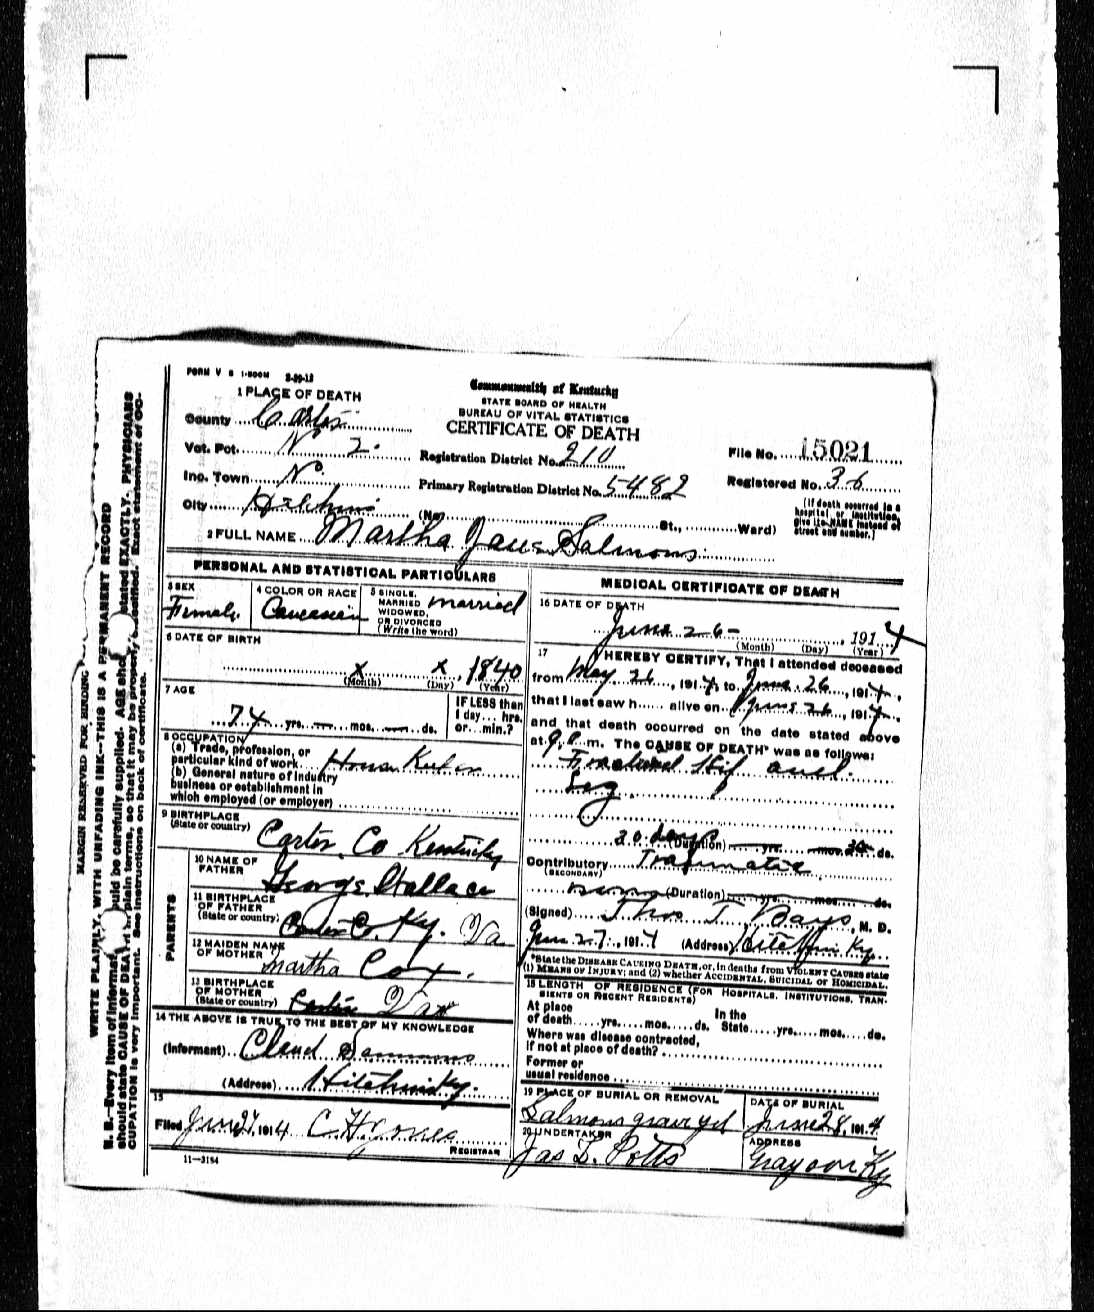 FORM V S 1-500M 8-29-13
Commonwealth of Kentucky
STATE BOARD OF HEALTH
BUREAU OF VITAL STATISTICS
CERTIFICATE OF DEATH
1 PLACE OF DEATH
County Carter
Vot. Pct. No 2
Inc. Town No
City Hitchins
Registration District No. 210
Primary Registration District No. 5482
(No. St., Ward)
File No. 15021
Registered No. 36
(If death occurred in a
hospital or institution,
give its NAME instead of
street and number.)
2 FULL NAME Martha Jane Salmons
PERSONAL AND STATISTICAL PARTICULARS
3 SEX
Female
4 COLOR OR RACE
Caucasian
5 SINGLE,
MARRIED
WIDOWED
OR DIVORCED
(Write the word)
married
6 DATE OF BIRTH
x x, 1840
(Month) (Day) (Year)
7 AGE
74 yrs. — mos. — ds.
IF LESS than
1 day... hrs.
or... min.?
8 OCCUPATION
(a) Trade, profession, or
particular kind of work House Keeper
(b) General nature of industry
business or establishment in
which employed (or employer)
9 BIRTHPLACE
(State or country)
Carter Co Kentucky
PARENTS
10 NAME OF
FATHER
George Wallace
11 BIRTHPLACE
OF FATHER
(State or country)
Carter Co. Ky. Va
12 MAIDEN NAME
OF MOTHER
Martha Cox.
13 BIRTHPLACE
OF MOTHER
(State or country)
Carter Va
14 THE ABOVE IS TRUE TO THE BEST OF MY KNOWLEDGE
(Informant) Claud Sammons
(Address) Hitchins Ky.
15
Filed June 27, 1914 C H Jones
REGISTRAR
11—3184
MEDICAL CERTIFICATE OF DEATH
16 DATE OF DEATH
June 26 — , 1914
(Month) (Day) (Year)
17 I HEREBY CERTIFY, That I attended deceased
from May 26, 1914, to June 26, 1914,
that I last saw h alive on June 26, 1914,
and that death occurred on the date stated above
at 9 P. m. The CAUSE OF DEATH* was as follows:
Fractured Hip and
Leg
30 days (Duration) yrs. mos. 30 ds.
Contributory Traumatic
(SECONDARY)
(Duration) yrs. mos. ds.
(Signed) Thos T Bays, M. D.
June 27, 1914 (Address) Hitchins Ky.
*State the DISEASE CAUSING DEATH, or, in deaths from VIOLENT CAUSES state
(1) MEANS OF INJURY; and (2) whether ACCIDENTAL, SUICIDAL or HOMICIDAL.
18 LENGTH OF RESIDENCE (FOR HOSPITALS, INSTITUTIONS, TRAN-
SIENTS OR RECENT RESIDENTS)
At place
of death yrs. mos. ds.
In the
State yrs. mos. ds.
Where was disease contracted,
if not at place of death?
Former or
usual residence
19 PLACE OF BURIAL OR REMOVAL
Salmons graveyd
DATE OF BURIAL
June 28, 1914
20 UNDERTAKER
Jas D. Potts
ADDRESS
Grayson Ky
MARGIN RESERVED FOR BINDING
WRITE PLAINLY, WITH UNFADING INK—THIS IS A PERMANENT RECORD
N. B.—Every item of information should be carefully supplied. AGE should be stated EXACTLY. PHYSICIANS
should state CAUSE OF DEATH in plain terms, so that it may be properly classified. Exact statement of OC-
CUPATION is very important. See instructions on back of certificate.